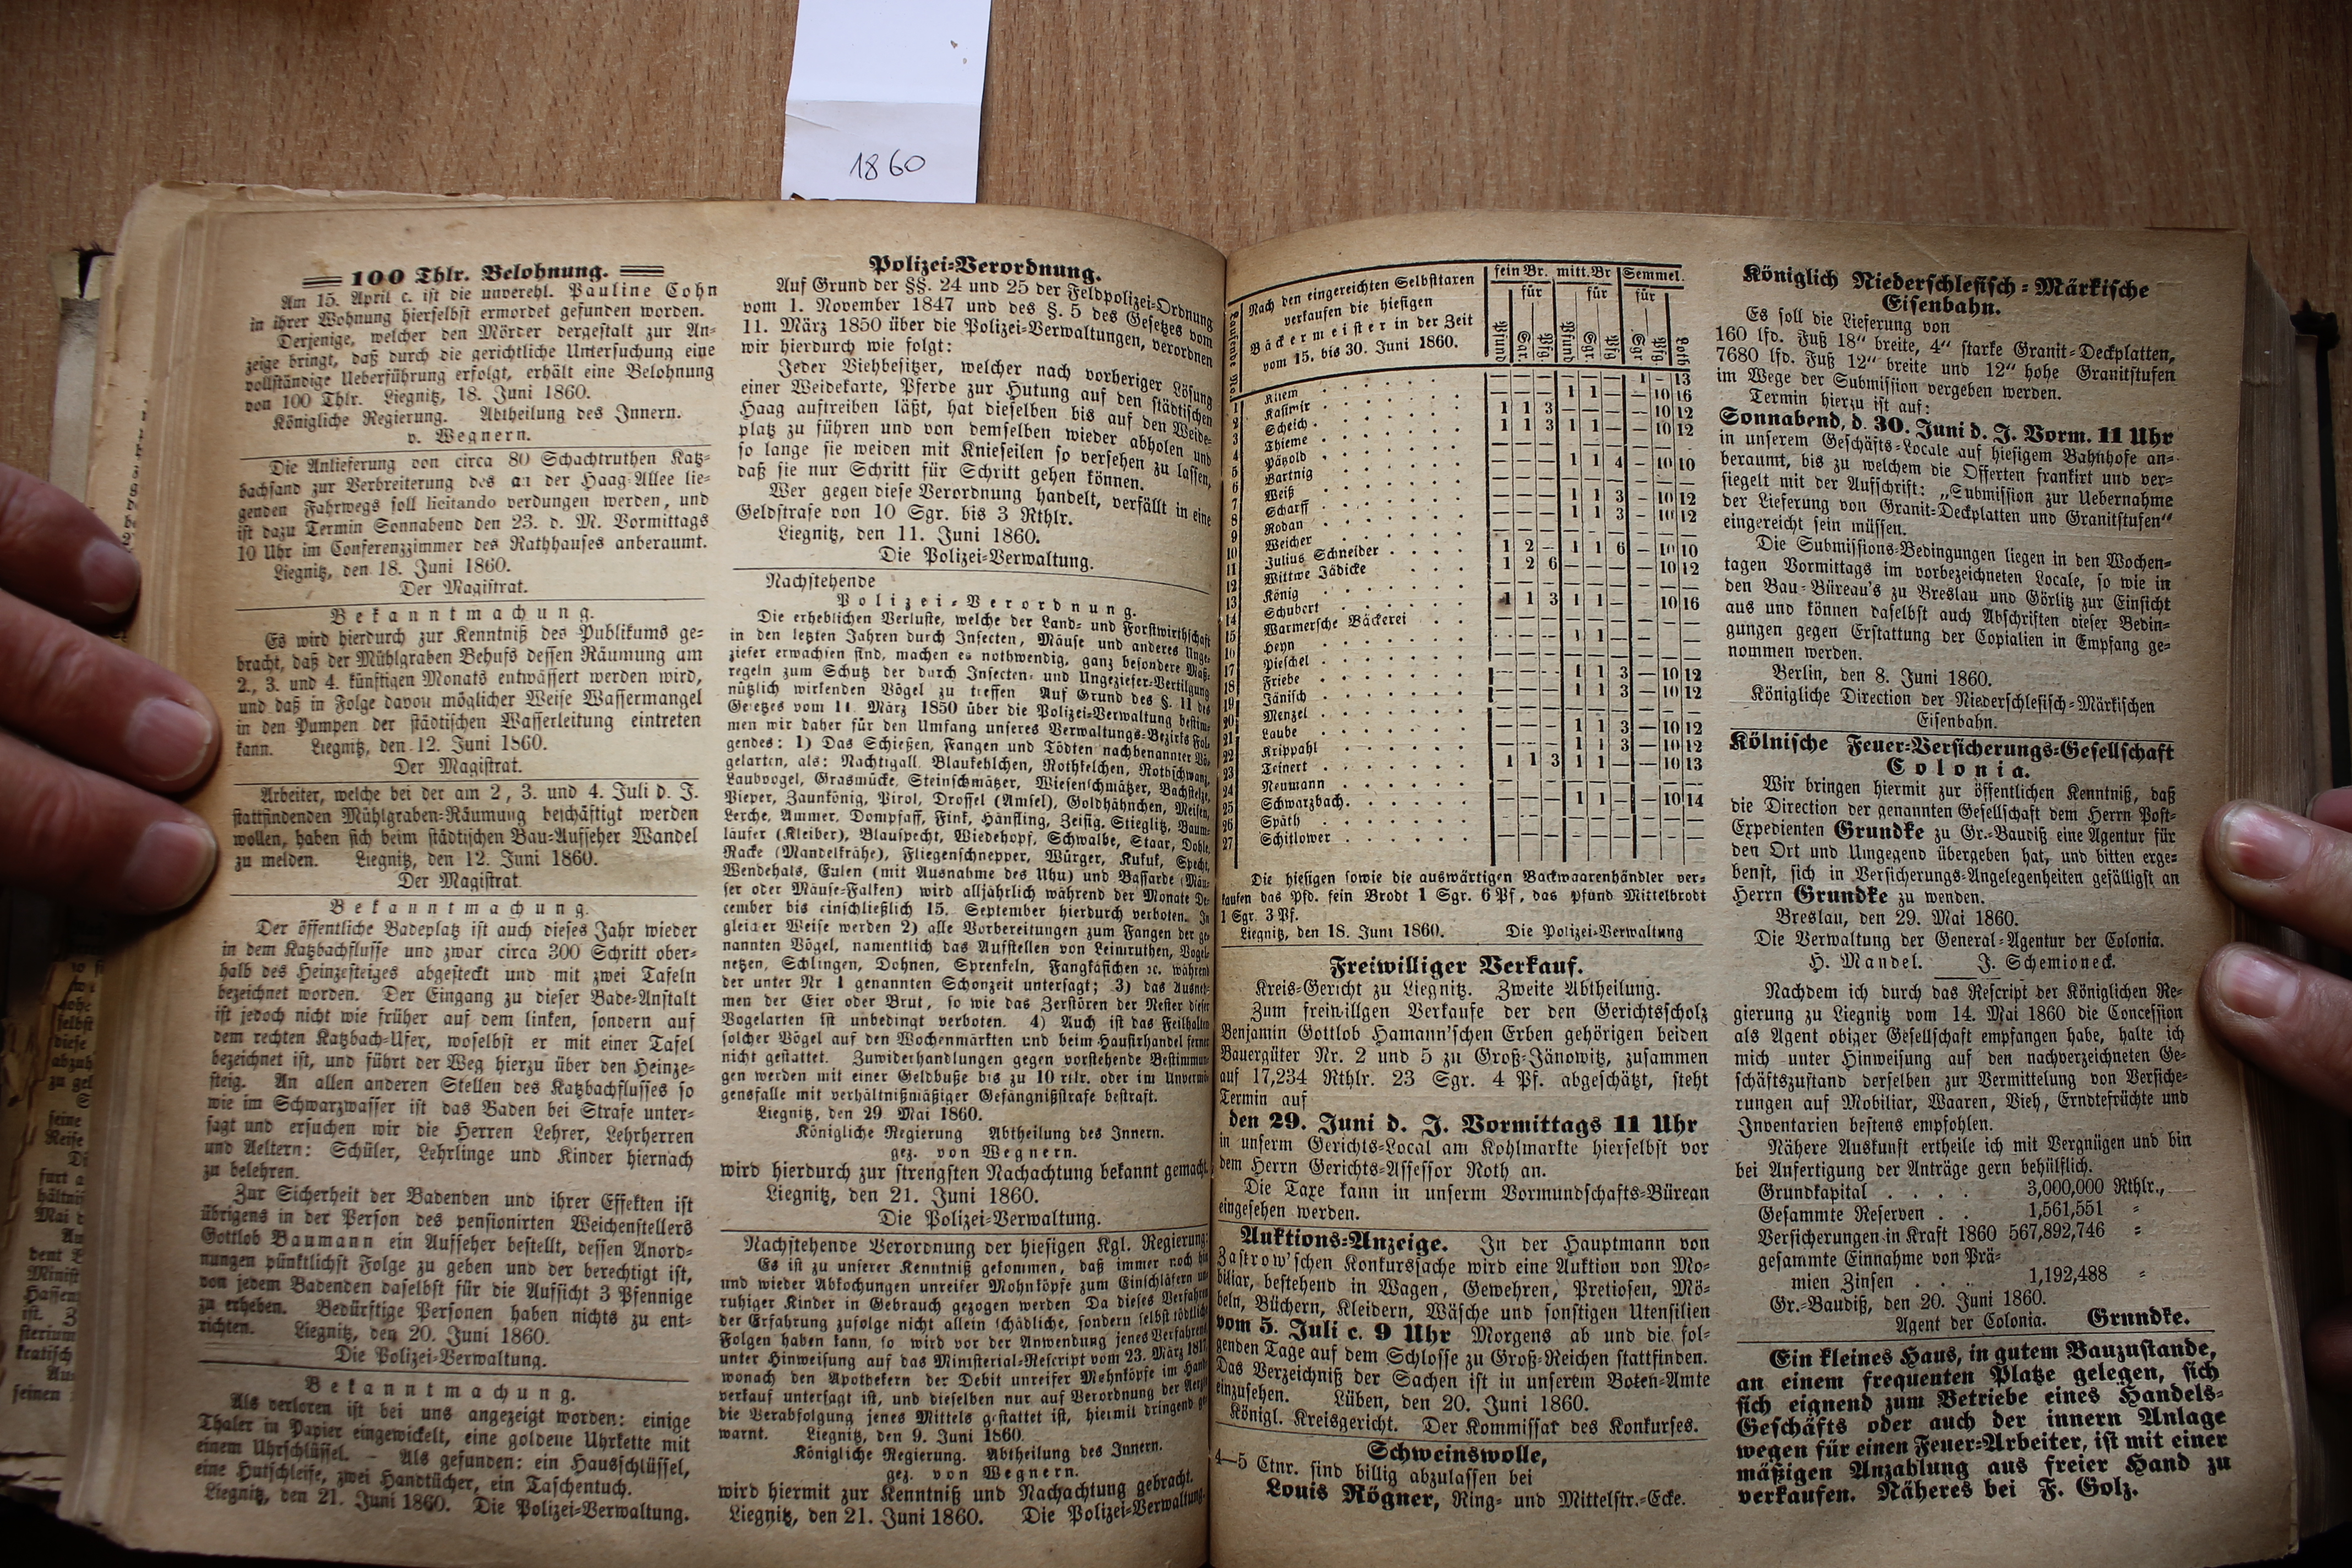 1860
100 Thlr. Belohnung.
Am 15. April c. ist die unverehl. Pauline Cohn
in ihrer Wohnung hierselbst ermordet gefunden worden.
Derjenige, welcher den Mörder dergestalt zur An-
zeige bringt, daß durch die gerichtliche Untersuchung eine
vollständige Ueberführung erfolgt, erhält eine Belohnung
von 100 Thlr. Liegnitz, 18. Juni 1860.
Königliche Regierung. Abtheilung des Innern.
v. Wegnern.
Die Anlieferung von circa 80 Schachtruthen Katz-
bachsand zur Verbreiterung des an der Haag-Allee lie-
genden Fahrwegs soll licitando verdungen werden, und
ist dazu Termin Sonnabend den 23. d. M. Vormittags
10 Uhr im Conferenzzimmer des Rathhauses anberaumt.
Liegnitz, den 18. Juni 1860.
Der Magistrat.
Bekanntmachung.
Es wird hierdurch zur Kenntniß des Publikums ge-
bracht, daß der Mühlgraben Behufs dessen Räumung am
2., 3. und 4. künftigen Monats entwässert werden wird,
und daß in Folge davon möglicher Weise Wassermangel
in den Pumpen der städtischen Wasserleitung eintreten
kann. Liegnitz, den 12. Juni 1860.
Der Magistrat.
Arbeiter, welche bei der am 2, 3. und 4. Juli d. J.
stattfindenden Mühlgraben-Räumung beschäftigt werden
wollen, haben sich beim städtischen Bau-Aufseher Wandel
zu melden. Liegnitz, den 12. Juni 1860.
Der Magistrat.
Bekanntmachung.
Der öffentliche Badeplatz ist auch dieses Jahr wieder
in dem Katzbachflusse und zwar circa 300 Schritt ober-
halb des Heinzesteiges abgesteckt und mit zwei Tafeln
bezeichnet worden. Der Eingang zu dieser Bade-Anstalt
ist jedoch nicht wie früher auf dem linken, sondern auf
dem rechten Katzbach-Ufer, woselbst er mit einer Tafel
bezeichnet ist, und führt der Weg hierzu über den Heinze-
steig. An allen anderen Stellen des Katzbachflusses so
wie im Schwarzwasser ist das Baden bei Strafe unter-
sagt und ersuchen wir die Herren Lehrer, Lehrherren
und Aeltern: Schüler, Lehrlinge und Kinder hiernach
zu belehren.
Zur Sicherheit der Badenden und ihrer Effekten ist
übrigens in der Person des pensionirten Weichenstellers
Gottlob Baumann ein Aufseher bestellt, dessen Anord-
nungen pünktlichst Folge zu geben und der berechtigt ist,
von jedem Badenden daselbst für die Aufsicht 3 Pfennige
zu erheben. Bedürftige Personen haben nichts zu ent-
richten. Liegnitz, den 20. Juni 1860.
Die Polizei-Verwaltung.
Bekanntmachung.
Als verloren ist bei uns angezeigt worden: einige
Thaler in Papier eingewickelt, eine goldene Uhrkette mit
einem Uhrschlüssel. – Als gefunden: ein Hausschlüssel,
eine Hutschleife, zwei Handtücher, ein Taschentuch.
Liegnitz, den 21. Juni 1860. Die Polizei-Verwaltung.
Polizei-Verordnung.
Auf Grund der §§. 24 und 25 der Feldpolizei-Ordnung
vom 1. November 1847 und des §. 5 des Gesetzes vom
11. März 1850 über die Polizei-Verwaltungen, verordnen
wir hierdurch wie folgt:
Jeder Viehbesitzer, welcher nach vorheriger Lösung
einer Weidekarte, Pferde zur Hutung auf den städtischen
Haag auftreiben läßt, hat dieselben bis auf den Weide-
platz zu führen und von demselben wieder abholen und
so lange sie weiden mit Knieseilen so versehen zu lassen,
daß sie nur Schritt für Schritt gehen können.
Wer gegen diese Verordnung handelt, verfällt in eine
Geldstrafe von 10 Sgr. bis 3 Rthlr.
Liegnitz, den 11. Juni 1860.
Die Polizei-Verwaltung.
Nachstehende
Polizei-Verordnung.
Die erheblichen Verluste, welche der Land- und Forstwirthschaft
in den letzten Jahren durch Insecten, Mäuse und anderes Unge-
ziefer erwachsen sind, machen es nothwendig, ganz besondere Maß-
regeln zum Schutz der durch Insecten- und Ungeziefer-Vertilgung
nützlich wirkenden Vögel zu treffen Auf Grund des §. 11 des
Gesetzes vom 11. März 1850 über die Polizei-Verwaltung bestim-
men wir daher für den Umfang unseres Verwaltungs-Bezirks Fol-
gendes: 1) Das Schießen, Fangen und Tödten nachbenannter Vö-
gelarten, als: Nachtigall, Blaukehlchen, Rothkelchen, Rothschwanz,
Laubvogel, Grasmücke, Steinschmätzer, Wiesenschmätzer, Bachstelze,
Pieper, Zaunkönig, Pirol, Drossel (Amsel), Goldhähnchen, Meisen,
Lerche, Ammer, Dompfaff, Fink, Hänfling, Zeisig, Stieglitz, Baum-
läufer (Kleiber), Blauspecht, Wiedehopf, Schwalbe, Staar, Dohle,
Racke (Mandelkrähe), Fliegenschnepper, Würger, Kukuk, Specht,
Wendehals, Eulen (mit Ausnahme des Uhu) und Bassarde (Mäu-
ser oder Mäuse-Falken) wird alljährlich während der Monate De-
cember bis einschließlich 15. September hierdurch verboten. In
gleicher Weise werden 2) alle Vorbereitungen zum Fangen der ge-
nannten Vögel, namentlich das Aufstellen von Leimruthen, Vogel-
netzen, Schlingen, Dohnen, Sprenkeln, Fangkäfichen ꝛc. während
der unter Nr 1 genannten Schonzeit untersagt; 3) das Ausneh-
men der Eier oder Brut, so wie das Zerstören der Nester dieser
Vogelarten ist unbedingt verboten. 4) Auch ist das Feilhalten
solcher Vögel auf den Wochenmärkten und beim Hausirhandel ferner
nicht gestattet. Zuwiderhandlungen gegen vorstehende Bestimmun-
gen werden mit einer Geldbuße bis zu 10 rtlr. oder im Unvermö-
gensfalle mit verhältnißmäßiger Gefängnißstrafe bestraft.
Liegnitz, den 29 Mai 1860.
Königliche Regierung Abtheilung des Innern.
gez. von Wegnern.
wird hierdurch zur strengsten Nachachtung bekannt gemacht.
Liegnitz, den 21. Juni 1860.
Die Polizei-Verwaltung.
Nachstehende Verordnung der hiesigen Kgl. Regierung:
Es ist zu unserer Kenntniß gekommen, daß immer noch hin
und wieder Abkochungen unreifer Mohnköpfe zum Einschläfern un-
ruhiger Kinder in Gebrauch gezogen werden Da dieses Verfahren
der Erfahrung zufolge nicht allein schädliche, sondern selbst tödtliche
Folgen haben kann, so wird vor der Anwendung jenes Verfahrens
unter Hinweisung auf das Ministerial-Rescript vom 23. März
wonach den Apothekern der Debit unreifer Mohnköpfe im Hand-
verkauf untersagt ist, und dieselben nur auf Verordnung der Aerzte
die Verabfolgung jenes Mittels gestattet ist, hiermit dringend ge-
warnt. Liegnitz, den 9. Juni 1860.
Königliche Regierung. Abtheilung des Innern.
gez. von Wegnern.
wird hiermit zur Kenntniß und Nachachtung gebracht.
Liegnitz, den 21. Juni 1860. Die Polizei-Verwaltung.
Laufende No.
Nach den eingereichten Selbsttaxen
verkaufen die hiesigen
Bäckermeister in der Zeit
vom 15. bis 30. Juni 1860.
fein Br. mitt. Br Semmel.
für für für
Pfund Sgr. Pfg. Pfund Sgr. Pfg Sgr. Pfg. Loth
1 Klem — — — — — — 1 – 13
2 Kasimir — — — 1 1 — — 10 16
3 Scheich 1 1 3 — — — — 10 12
4 Thieme 1 1 3 1 1 — — 10 12
5 Pätzold
6 Bartnig — — — 1 1 4 — 10 10
7 Weiß
8 Scharff — — — 1 1 3 — 10 12
9 Rodan — — — 1 1 3 — 10 12
10 Weicher
11 Julius Schneider 1 2 – 1 1 6 — 10 10
12 Wittwe Jädicke 1 2 6 — — — — 10 12
13 König
14 Schubert 1 1 3 1 1 — 10 16
15 Warmersche Bäckerei
16 Heyn — — — 1 1 —
17 Pieschel
18 Friebe — — — 1 1 3 — 10 12
19 Jänisch — — — 1 1 3 — 10 12
20 Menzel
21 Laube — — — 1 1 3 — 10 12
22 Krippahl — — — 1 1 3 — 10 12
23 Teinert 1 1 3 1 1 — — 10 13
24 Neumann
25 Schwarzbach. — — — 1 1 — — 10 14
26 Späth
27 Schitlower
Die hiesigen sowie die auswärtigen Backwaarenhändler ver-
kaufen das Pfd. fein Brodt 1 Sgr. 6 Pf, das Pfund Mittelbrodt
1 Sgr. 3 Pf.
Liegnitz, den 18. Juni 1860. Die Polizei-Verwaltung
Freiwilliger Verkauf.
Kreis-Gericht zu Liegnitz. Zweite Abtheilung.
Zum freiwillgen Verkaufe der den Gerichtsscholz
Benjamin Gottlob Hamann'schen Erben gehörigen beiden
Bauergüter Nr. 2 und 5 zu Groß-Jänowitz, zusammen
auf 17,234 Rthlr. 23 Sgr. 4 Pf. abgeschätzt, steht
Termin auf
den 29. Juni d. J. Vormittags 11 Uhr
in unserm Gerichts-Local am Kohlmarkte hierselbst vor
dem Herrn Gerichts-Assessor Roth an.
Die Taxe kann in unserm Vormundschafts-Büreau
eingesehen werden.
Auktions-Anzeige. In der Hauptmann von
Zastrow'schen Konkurssache wird eine Auktion von Mo-
biliar, bestehend in Wagen, Gewehren, Pretiosen, Mö-
beln, Büchern, Kleidern, Wäsche und sonstigen Utensilien
vom 5. Juli c. 9 Uhr Morgens ab und die fol-
genden Tage auf dem Schlosse zu Groß-Reichen stattfinden.
Das Verzeichniß der Sachen ist in unserem Boten-Amte
einzusehen. Lüben, den 20. Juni 1860.
Königl. Kreisgericht. Der Kommissar des Konkurses.
Schweinswolle,
4—5 Ctnr. sind billig abzulassen bei
Louis Rögner, Ring- und Mittelstr.-Ecke.
Königlich Niederschlesisch-Märkische
Eisenbahn.
Es soll die Lieferung von
160 lfd. Fuß 18" breite, 4" starke Granit-Deckplatten,
7680 lfd. Fuß 12" breite und 12" hohe Granitstufen
im Wege der Submission vergeben werden.
Termin hierzu ist auf:
Sonnabend, d. 30. Juni d. J. Vorm. 11 Uhr
in unserem Geschäfts-Locale auf hiesigem Bahnhofe an-
beraumt, bis zu welchem die Offerten frankirt und ver-
siegelt mit der Aufschrift: „Submission zur Uebernahme
der Lieferung von Granit-Deckplatten und Granitstufen"
eingereicht sein müssen.
Die Submissions-Bedingungen liegen in den Wochen-
tagen Vormittags im vorbezeichneten Locale, so wie in
den Bau-Büreau's zu Breslau und Görlitz zur Einsicht
aus und können daselbst auch Abschriften dieser Bedin-
gungen gegen Erstattung der Copialien in Empfang ge-
nommen werden.
Berlin, den 8. Juni 1860.
Königliche Direction der Niederschlesisch-Märkischen
Eisenbahn.
Kölnische Feuer-Versicherungs-Gesellschaft
Colonia.
Wir bringen hiermit zur öffentlichen Kenntniß, daß
die Direction der genannten Gesellschaft dem Herrn Post-
Expedienten Grundke zu Gr.-Baudiß eine Agentur für
den Ort und Umgegend übergeben hat, und bitten erge-
benst, sich in Versicherungs-Angelegenheiten gefälligst an
Herrn Grundke zu wenden.
Breslau, den 29. Mai 1860.
Die Verwaltung der General-Agentur der Colonia.
H. Mandel. J. Schemioneck.
Nachdem ich durch das Rescript der Königlichen Re-
gierung zu Liegnitz vom 14. Mai 1860 die Concession
als Agent obiger Gesellschaft empfangen habe, halte ich
mich unter Hinweisung auf den nachverzeichneten Ge-
schäftszustand derselben zur Vermittelung von Versiche-
rungen auf Mobiliar, Waaren, Vieh, Erndtefrüchte und
Inventarien bestens empfohlen.
Nähere Auskunft ertheile ich mit Vergnügen und bin
bei Anfertigung der Anträge gern behülflich.
Grundkapital . . . . 3,000,000 Rthlr.,
Gesammte Reserven . . 1,561,551 =
Versicherungen in Kraft 1860 567,892,746 =
gesammte Einnahme von Prä-
mien Zinsen . . . 1,192,488 =
Gr.-Baudiß, den 20. Juni 1860.
Agent der Colonia. Grundke.
Ein kleines Haus, in gutem Bauzustande,
an einem frequenten Platze gelegen, sich
sich eignend zum Betriebe eines Handels-
Geschäfts oder auch der innern Anlage
wegen für einen Feuer-Arbeiter, ist mit einer
mäßigen Anzahlung aus freier Hand zu
verkaufen. Näheres bei F. Golz.